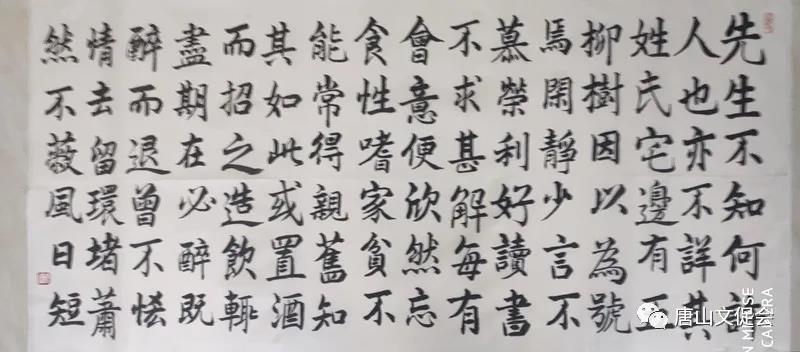 先生不知何許
人也亦不詳其
姓氏宅邊有五
柳樹因以為號
焉閑靜少言不
慕榮利好讀書
不求甚解每有
會意便欣然忘
食性嗜家貧不
能常得親舊知
其如此或置酒
而招之造飲輒
盡期在必醉既
醉而退曾不恡
情去留環堵蕭
然不蔽風日短
唐山文促会